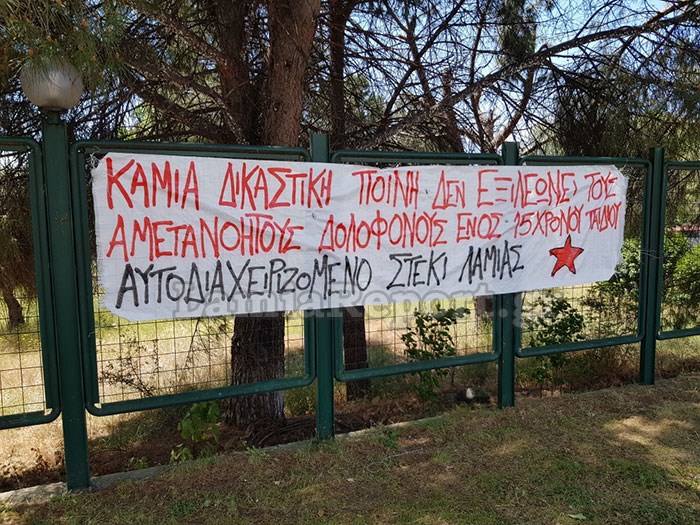 ΚΑΜΙΑ ΔΙΚΑΣΤΙΚΗ ΠΟΙΝΗ ΔΕΝ ΕΞΙΛΕΩΝΕΙ ΤΟΥΣ
ΑΜΕΤΑΝΟΗΤΟΥΣ ΔΟΛΟΦΟΝΟΥΣ ΕΝΟΣ 15ΧΡΟΝΟΥ ΠΑΙΔΙΟΥ
ΑΥΤΟΔΙΑΧΕΙΡΙΖΟΜΕΝΟ ΣΤΕΚΙ ΛΑΜΙΑΣ
LamiaReport.gr